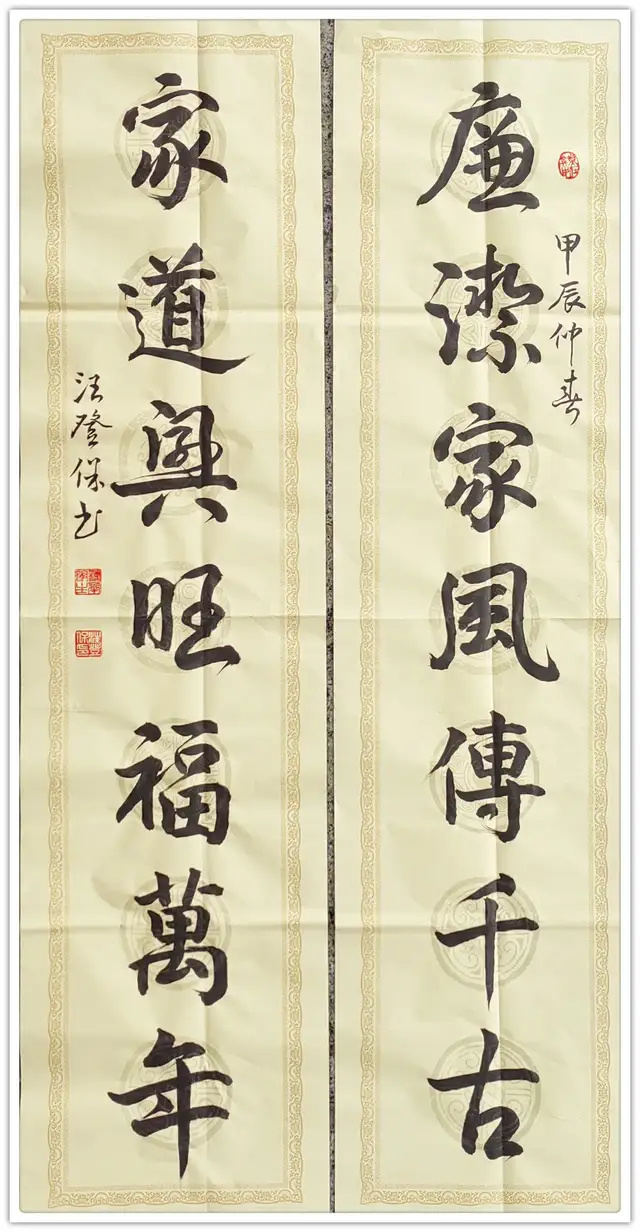 甲辰仲春
廉潔家風傳千古
家道興旺福萬年
汪登保书